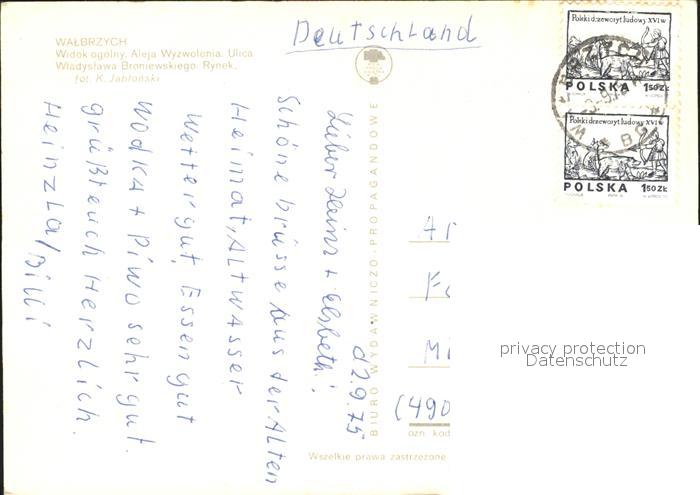 WAŁBRZYCH
Widok ogólny, Aleja Wyzwolenia, Ulica
Władysława Broniewskiego, Rynek,
fot. K. Jabłoński
Deutschland
Polski drzeworyt ludowy XVI w
POLSKA 1,50 ZŁ
Polski drzeworyt ludowy XVI w
POLSKA 1,50 ZŁ
d 2.9.75
Lieber Heinz + Elsbeth!
Schöne Grüsse aus der Alten
Heimat, Altwasser
Wetter gut, Essen gut
Wodka + Piwo sehr gut.
grüßt euch Herzlich.
Heinzla/Billi
BIURO WYDAWNICZO-PROPAGANDOWE
(490
ozn. kod
Wszelkie prawa zastrzeżone
privacy protection
Datenschutz